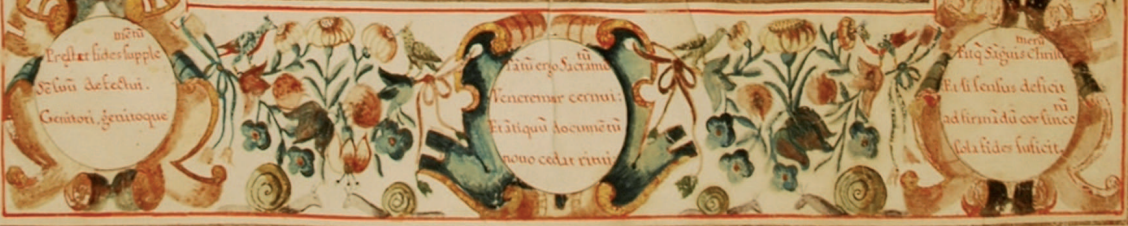 mētū
Prestet fides supple
Sēsuū defectui.
Genitori, genitoque
tū
Tātū ergo Sacramē
Veneremur cernui:
Et ātiquū documētū
nouo cedat ritui:
merū
Fitq̄ Sāguis Christi
Et si sensus deficit
rū
ad firmādū cor sincē
sola fides suficit.